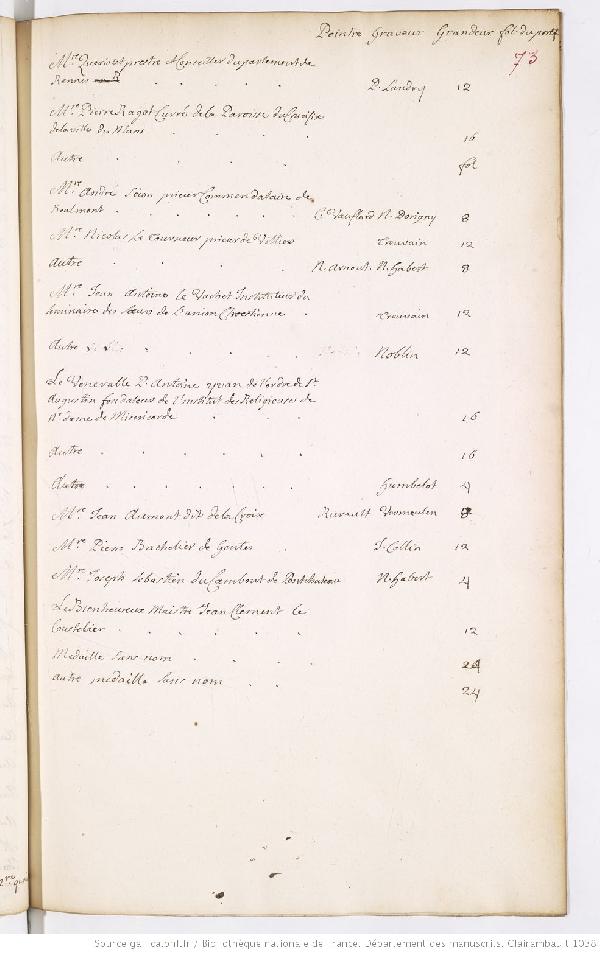 Peintre Graveur Grandeur fol. du portf.
73
Mre Queriolet prestre Conseiller du parlement de
Rennes . . . . D. Landry 12
Mre Pierre Ragot Curé de la Paroisse du Crucifix
de la ville du Mans . . 16
Autre . . . fol
Mre André prieur Commendataire de
Realmont . . . . C. Vauflard N. Dorigny 8
Mre Nicolas le Tourneux prieur de Villiers Crouvain 12
Autre . . . R. Arnout. N. Habert 8
Mre Jean Antoine le Vachet Instituteur du
Seminaire des Sœurs de L'union Chrestienne . Crouvain 12
Autre . . . Noblin 12
Le Venerable P. Antoine yvan de l'ordre de St
Augustin fondateur de l'institut des Religieuses de
N.e dame de Misericorde . . 16
Autre . . . . . 16
Autre . . . . Humbelot 4
Mre Jean Aumont dit de la Croix Vermeulen 8
Mre Piere Bachelier de Gentes . . J. Collin 12
Mre Joseph Sebastien du Cambout de Pontchateau N. Habert 4
Le Bienheureux Maistre Jean Clement le
Coustelier . . . . 12
Medaille sans nom . . . 24
Autre medaille sans nom . . 24
2re
Source gallica.bnf.fr / Bibliothèque nationale de France. Département des manuscrits. Clairambault 1038